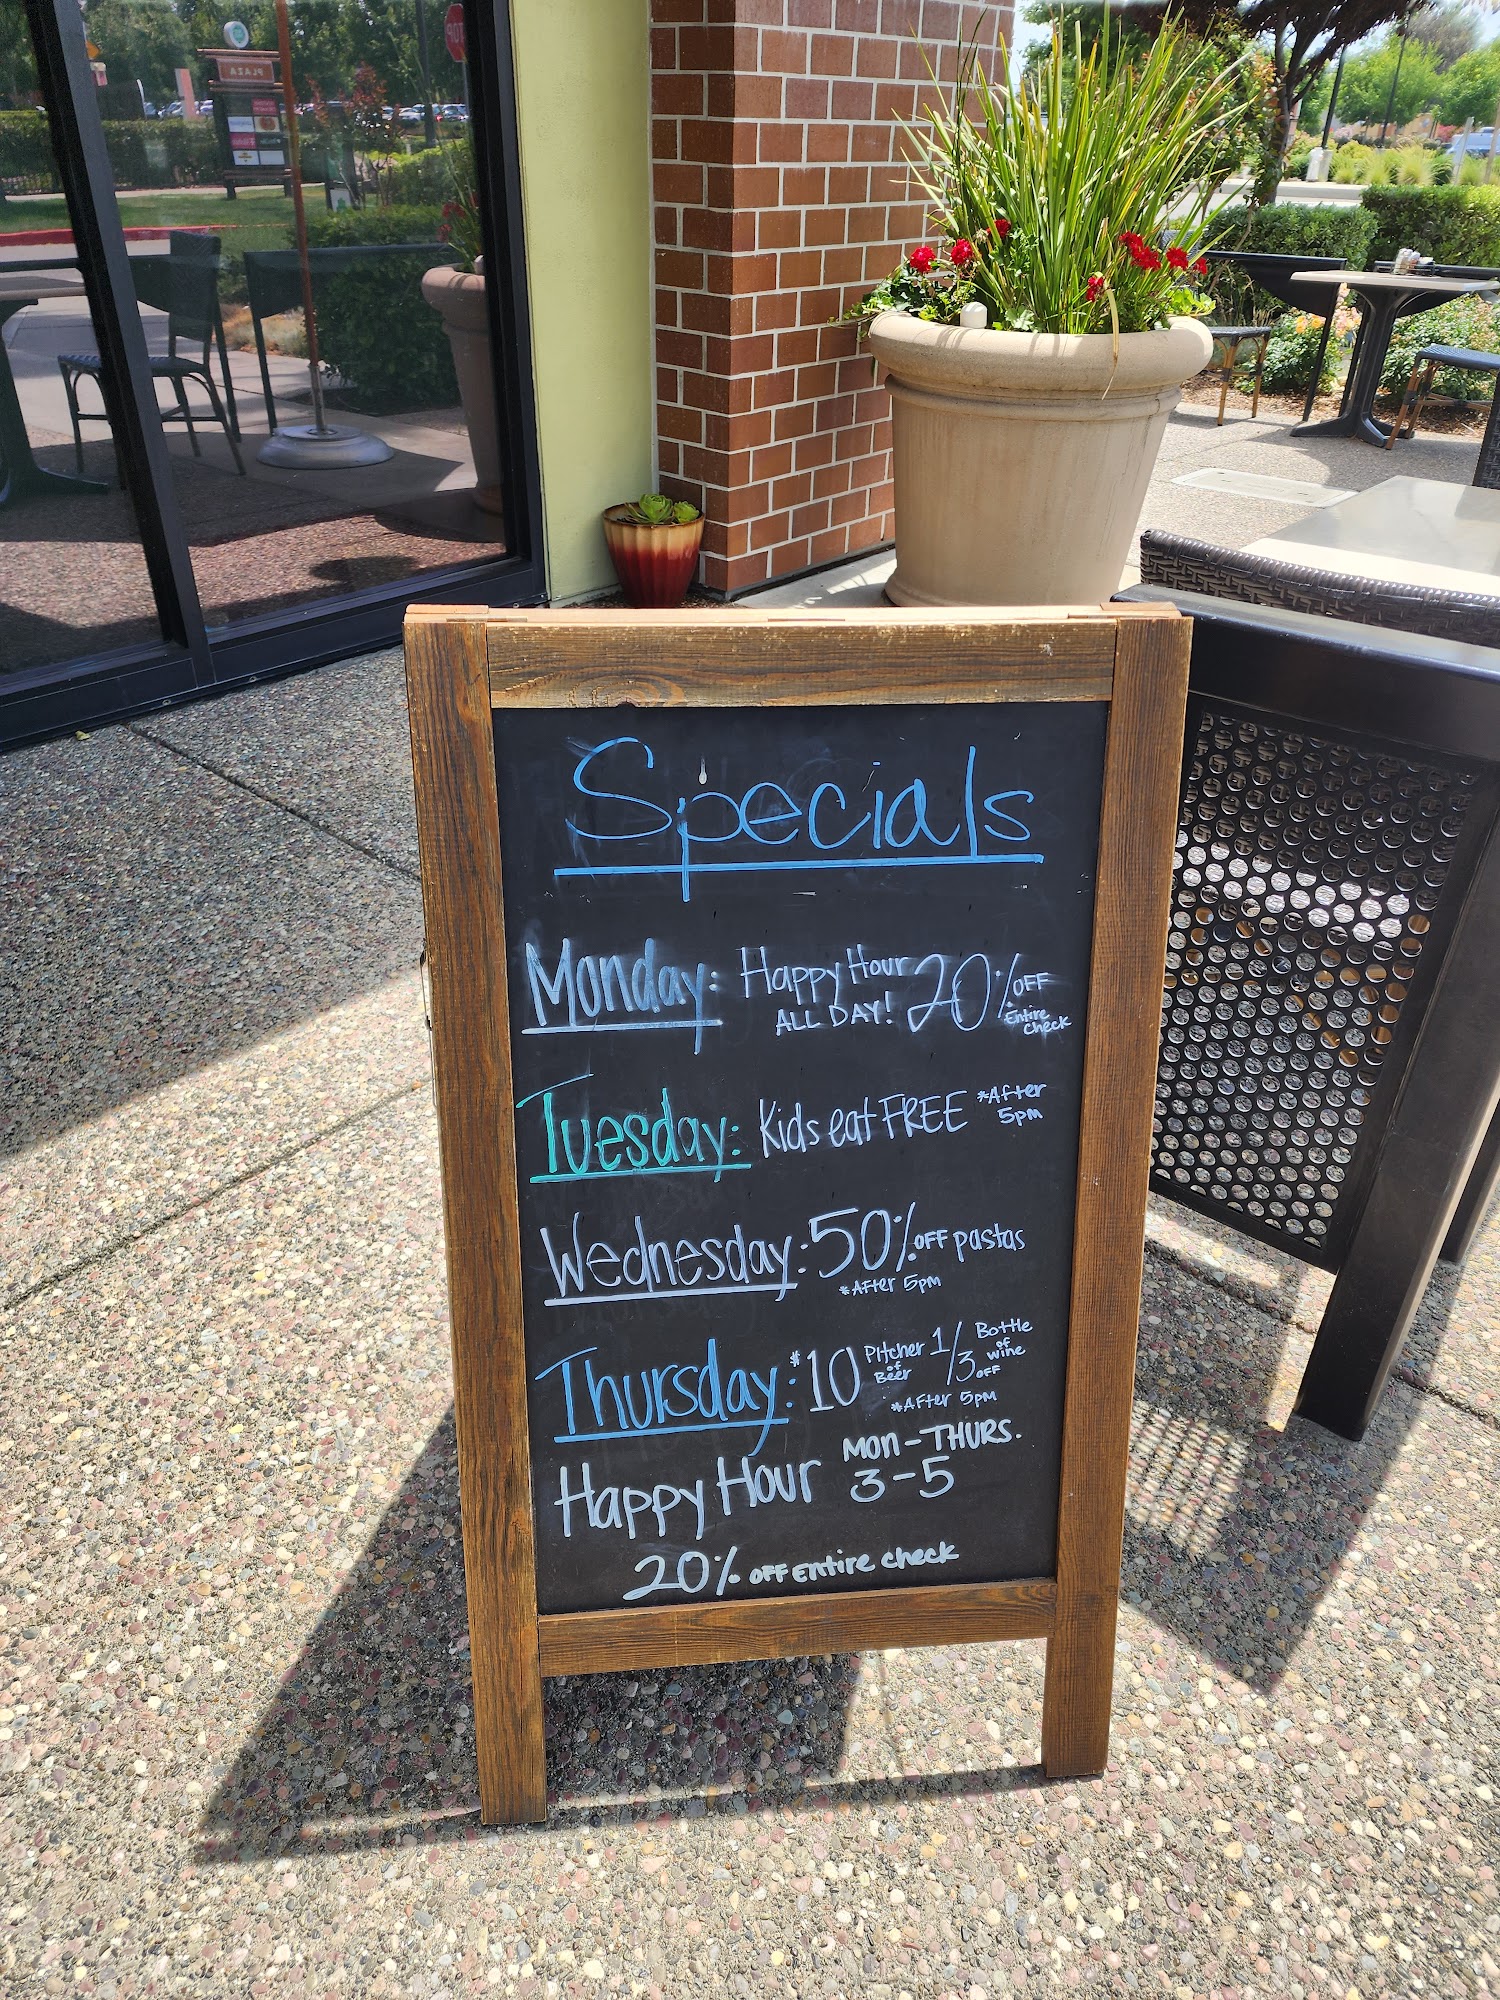 PLAZA
STOP
Specials
Monday: Happy Hour 20% OFF
ALL DAY! Entire
check
Tuesday: Kids eat FREE *After
5pm
Wednesday: 50% OFF pastas
*After 5pm
Thursday: $10 Pitcher of Beer 1/3 OFF Bottle of wine
*After 5pm
Happy Hour MON-THURS.
3-5
20% OFF Entire check